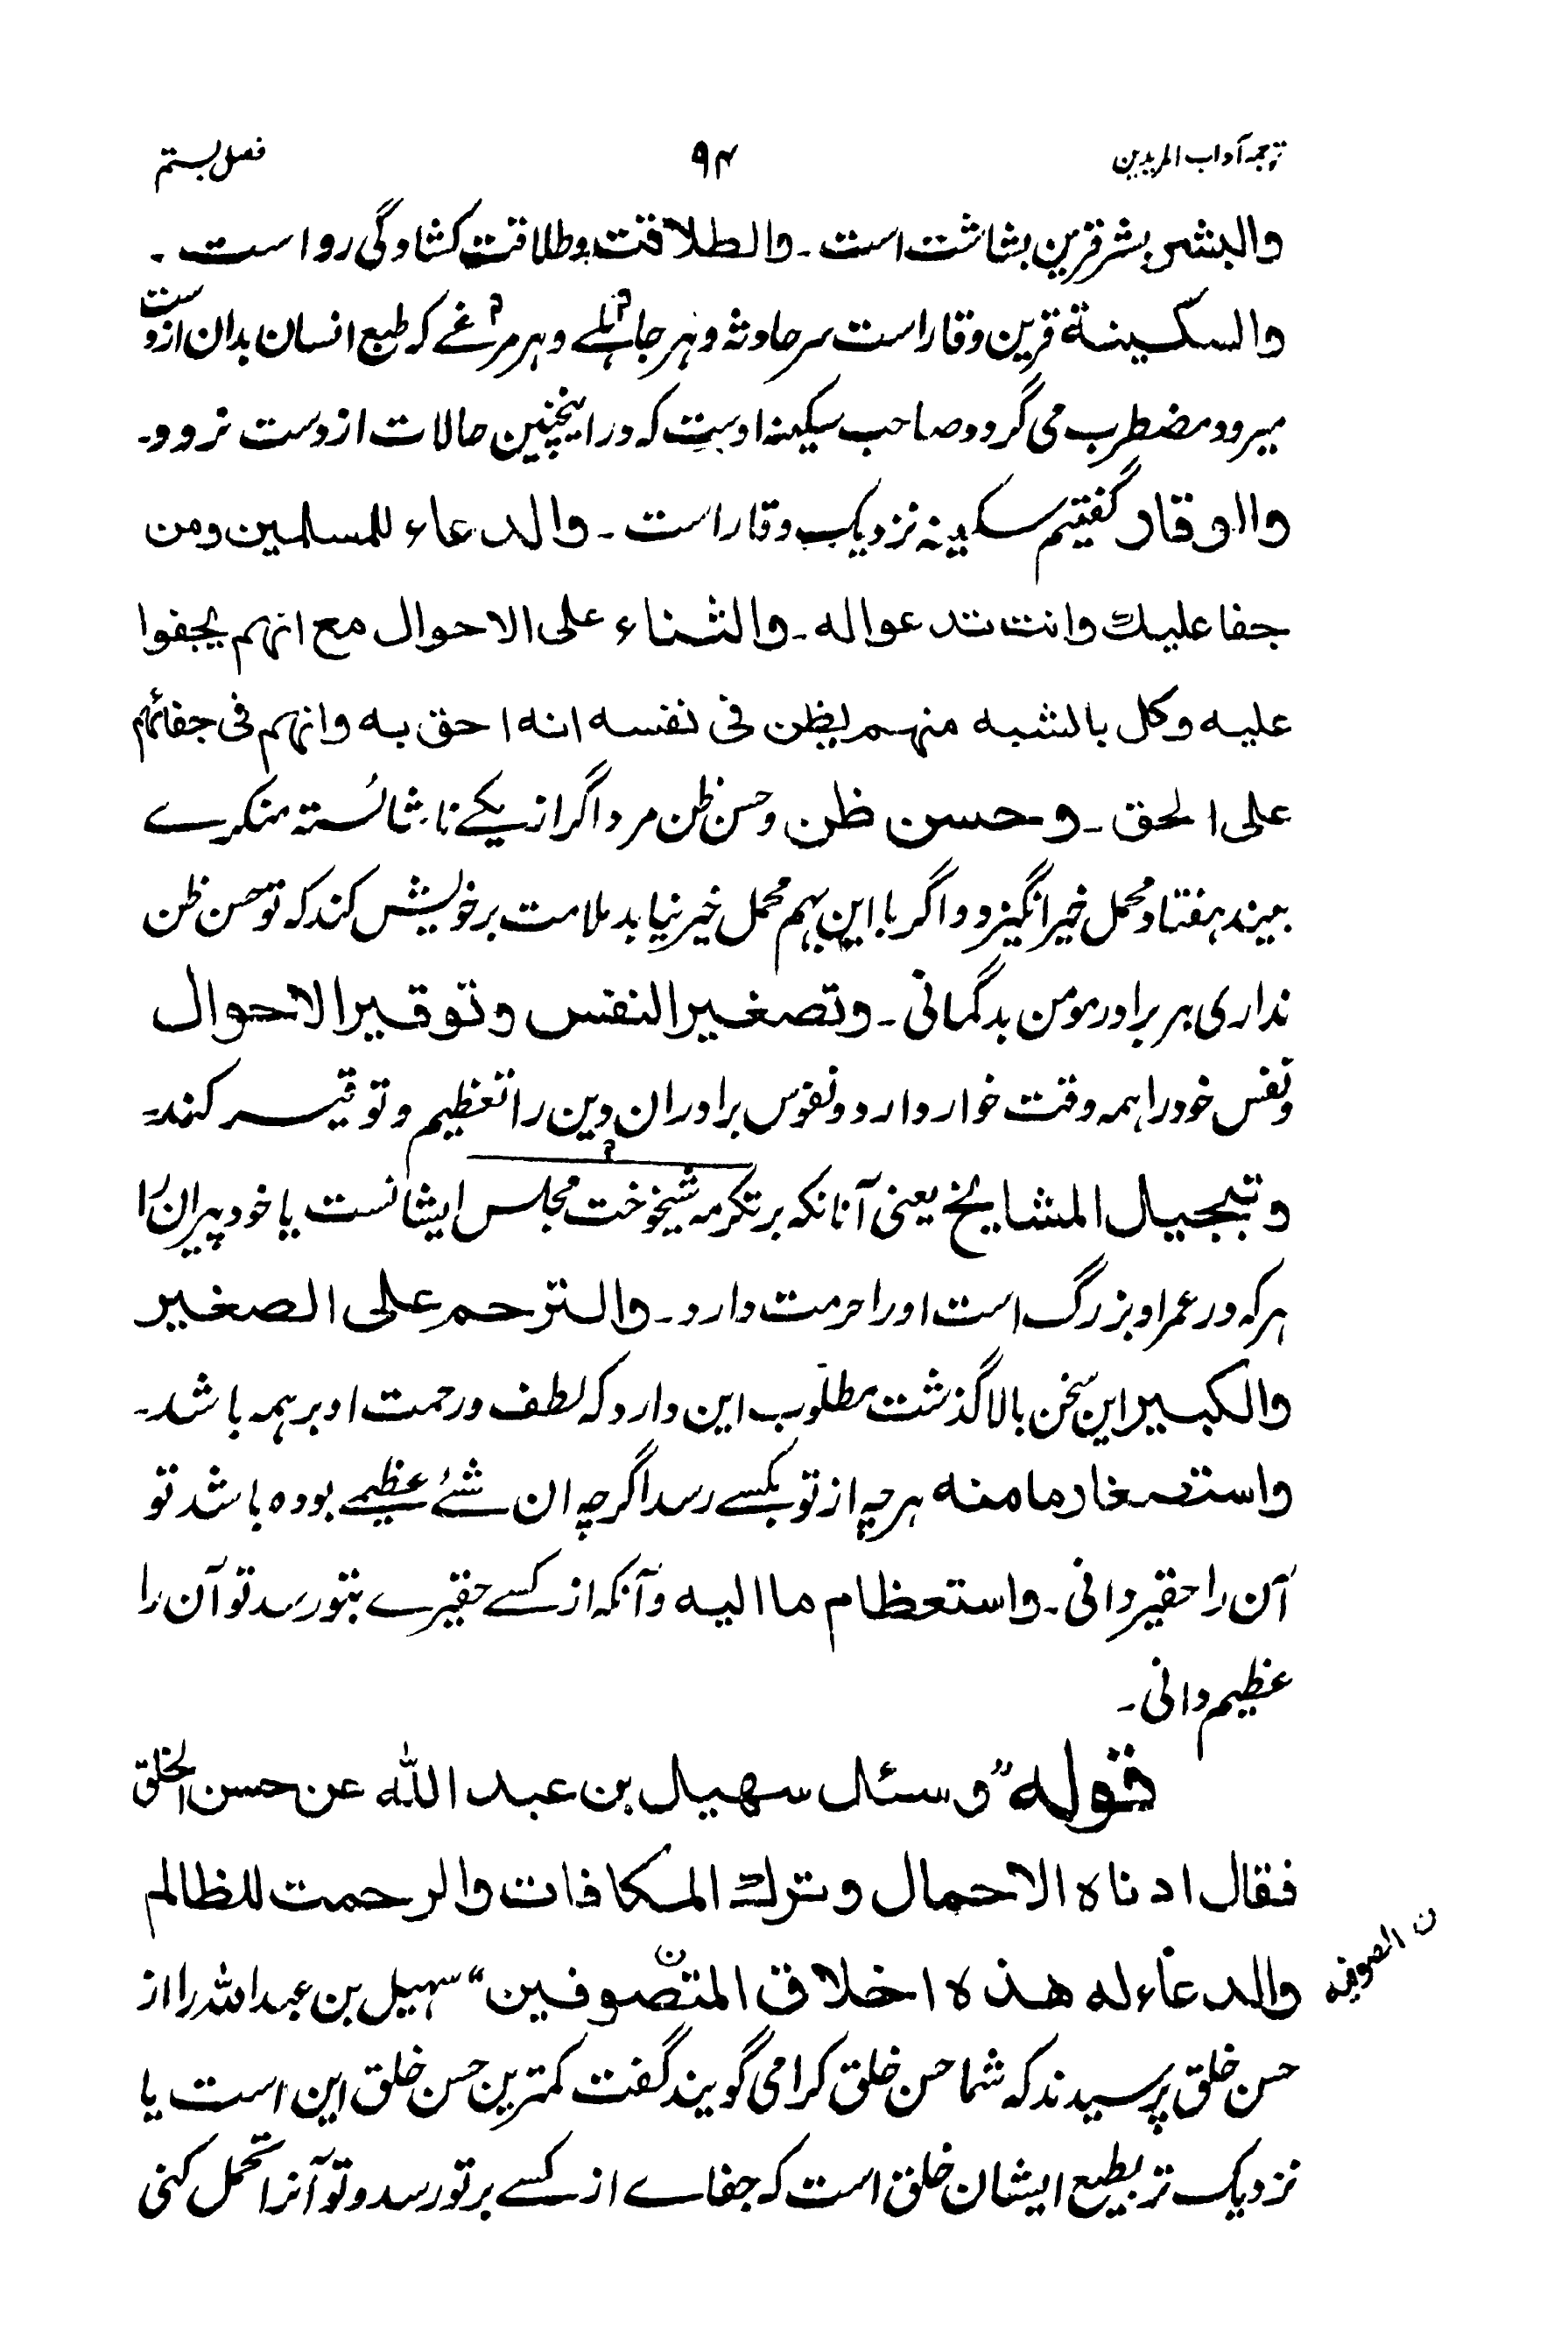 ترجمہ آداب المریدین ۹۴ فصل بستم
والبشر بشر قرین بشاشت است ۔ والطلاقت وطلاقت کشادگی رو است ۔
والسکینة قرین وقار است ہر حادثہ و ہر جاہلے و ہر مرغے کہ طبع انسان بدان از دست
میرود مضطرب می گردد صاحب سکینہ اوست کہ در اینچنین حالات از دست نرود ۔
والوقار گفتیم سکینہ نزدیک وقار است ۔ والدعاء للمسلمین ومن
جفا علیك وانت تدعواله ۔ والثناء علی الاحوال مع انهم یجفوا
علیه وکل بالشبه منهم یظن فی نفسه انه احق به وانهم فی جفائهم
علی الحق ۔ وحسن ظن وحسن ظن مرد اگر از یکے نا شائستہ منکرے
بیند ہفتاد محمل خیر انگیزد و اگر با این ہم محمل خیر نیابد ملامت بر خویش کند کہ تو حسن ظن
نداری بر برادر مومن بدگمانی ۔ وتصغیر النفس وتوقیر الاحوال
ونفس خود را ہمہ وقت خوار دارد ونفوس برادران دین را تعظیم و توقیر کند ۔
وتبجیل المشایخ یعنی آنانکہ بر تکرمہ شیخوخت مجلس ایشانست یا خود پیران را
ہر کہ در عمر او بزرگ است او را حرمت دارد ۔ والترحم علی الصغیر
والکبیر این سخن بالا گذشت مطلوب این دارد کہ لطف ورحمت او بر ہمہ باشد ۔
واستصغار ما منه ہر چہ از تو بکسے رسد اگر چہ ان شئے عظیمے بودہ باشد تو
آن را حقیر دانی ۔ واستعظام ما الیه وآنکہ از کسے حقیرے بتو رسد تو آن را
عظیم دانی ۔
قوله ”وسئل سهیل بن عبد الله عن حسن الخلق
فقال ادناه الاحمال وترك المکافات والرحمت للظالم
والدعاء له هذه اخلاق المتصوفین“ سہیل بن عبد اللہ را از
ن الصوفیہ
حسن خلق پرسیدند کہ شما حسن خلق کرامی گویند گفت کمترین حسن خلق این است یا
نزدیک تر بطبع ایشان خلق است کہ جفاے از کسے بر تو رسد و تو آنرا تحمل کنی